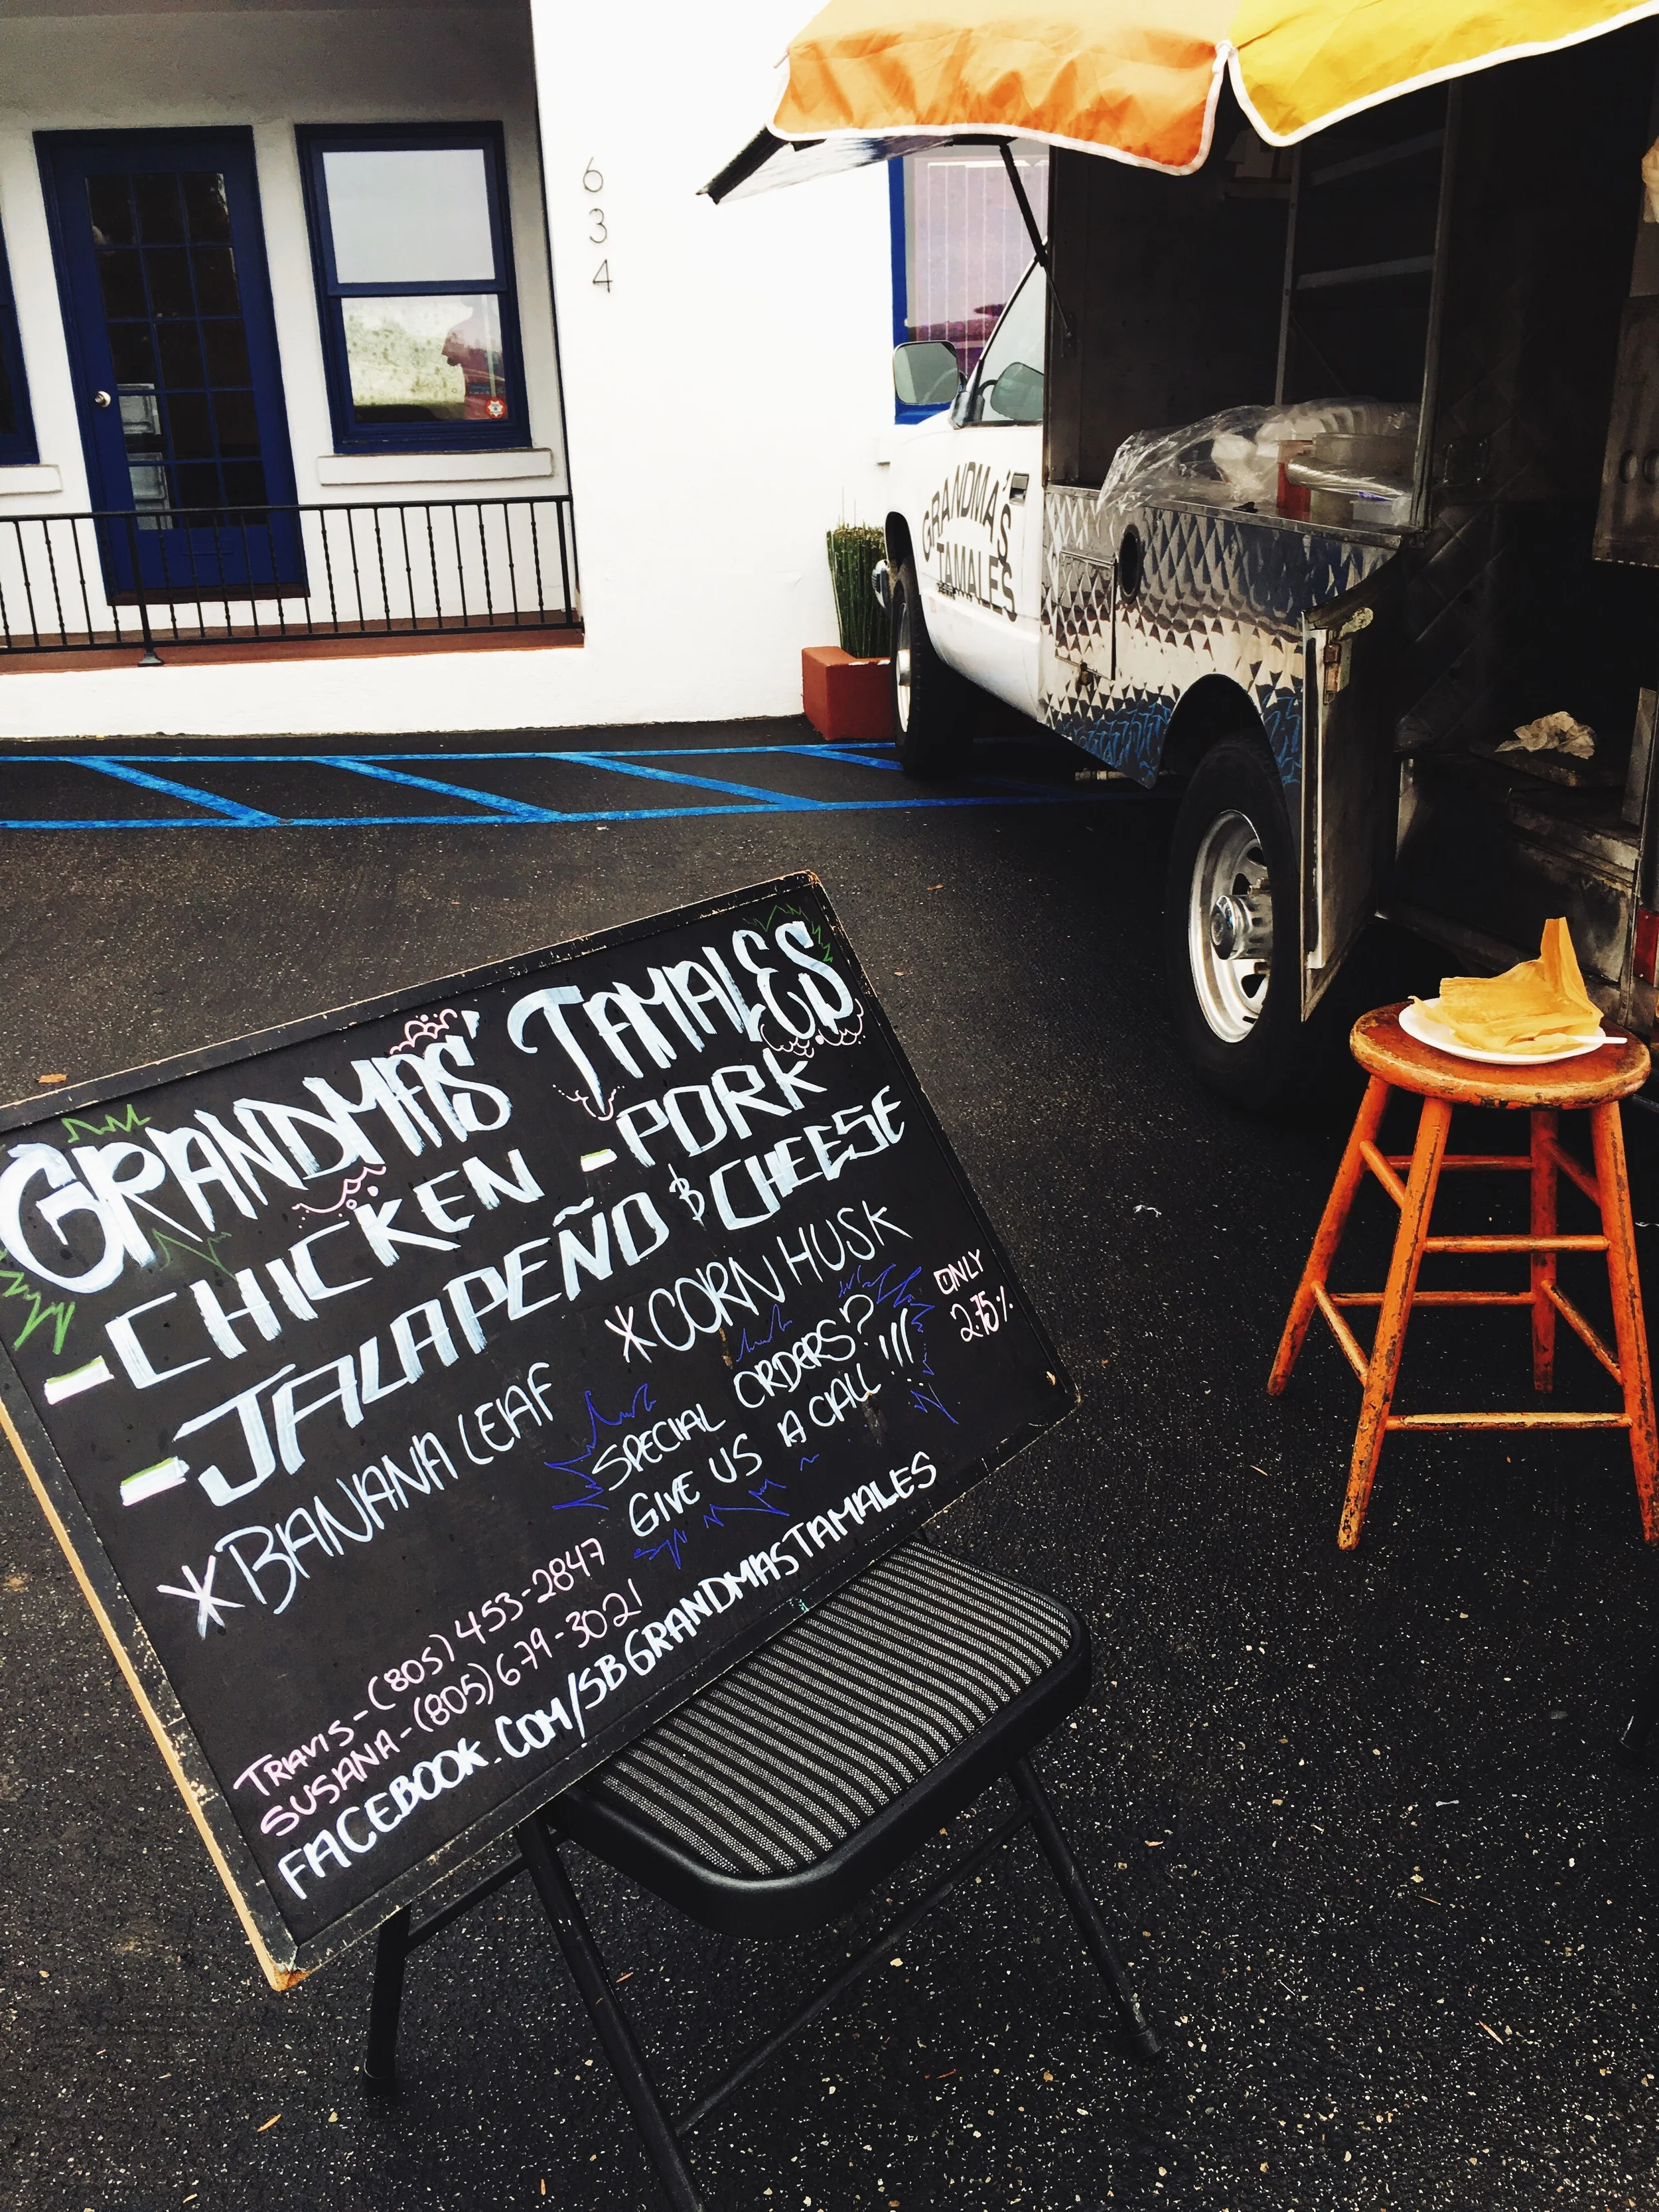 6
3
4
GRANDMA'S
TAMALES
GRANDMAS' TAMALES
-CHICKEN -PORK
-JALAPEÑO & CHEESE
*BANANA LEAF *CORN HUSK
ONLY
2.75%
SPECIAL ORDERS?
GIVE US A CALL!!!
TRAVIS-(805)453-2847
SUSANA-(805)679-3021
FACEBOOK.COM/SBGRANDMASTAMALES